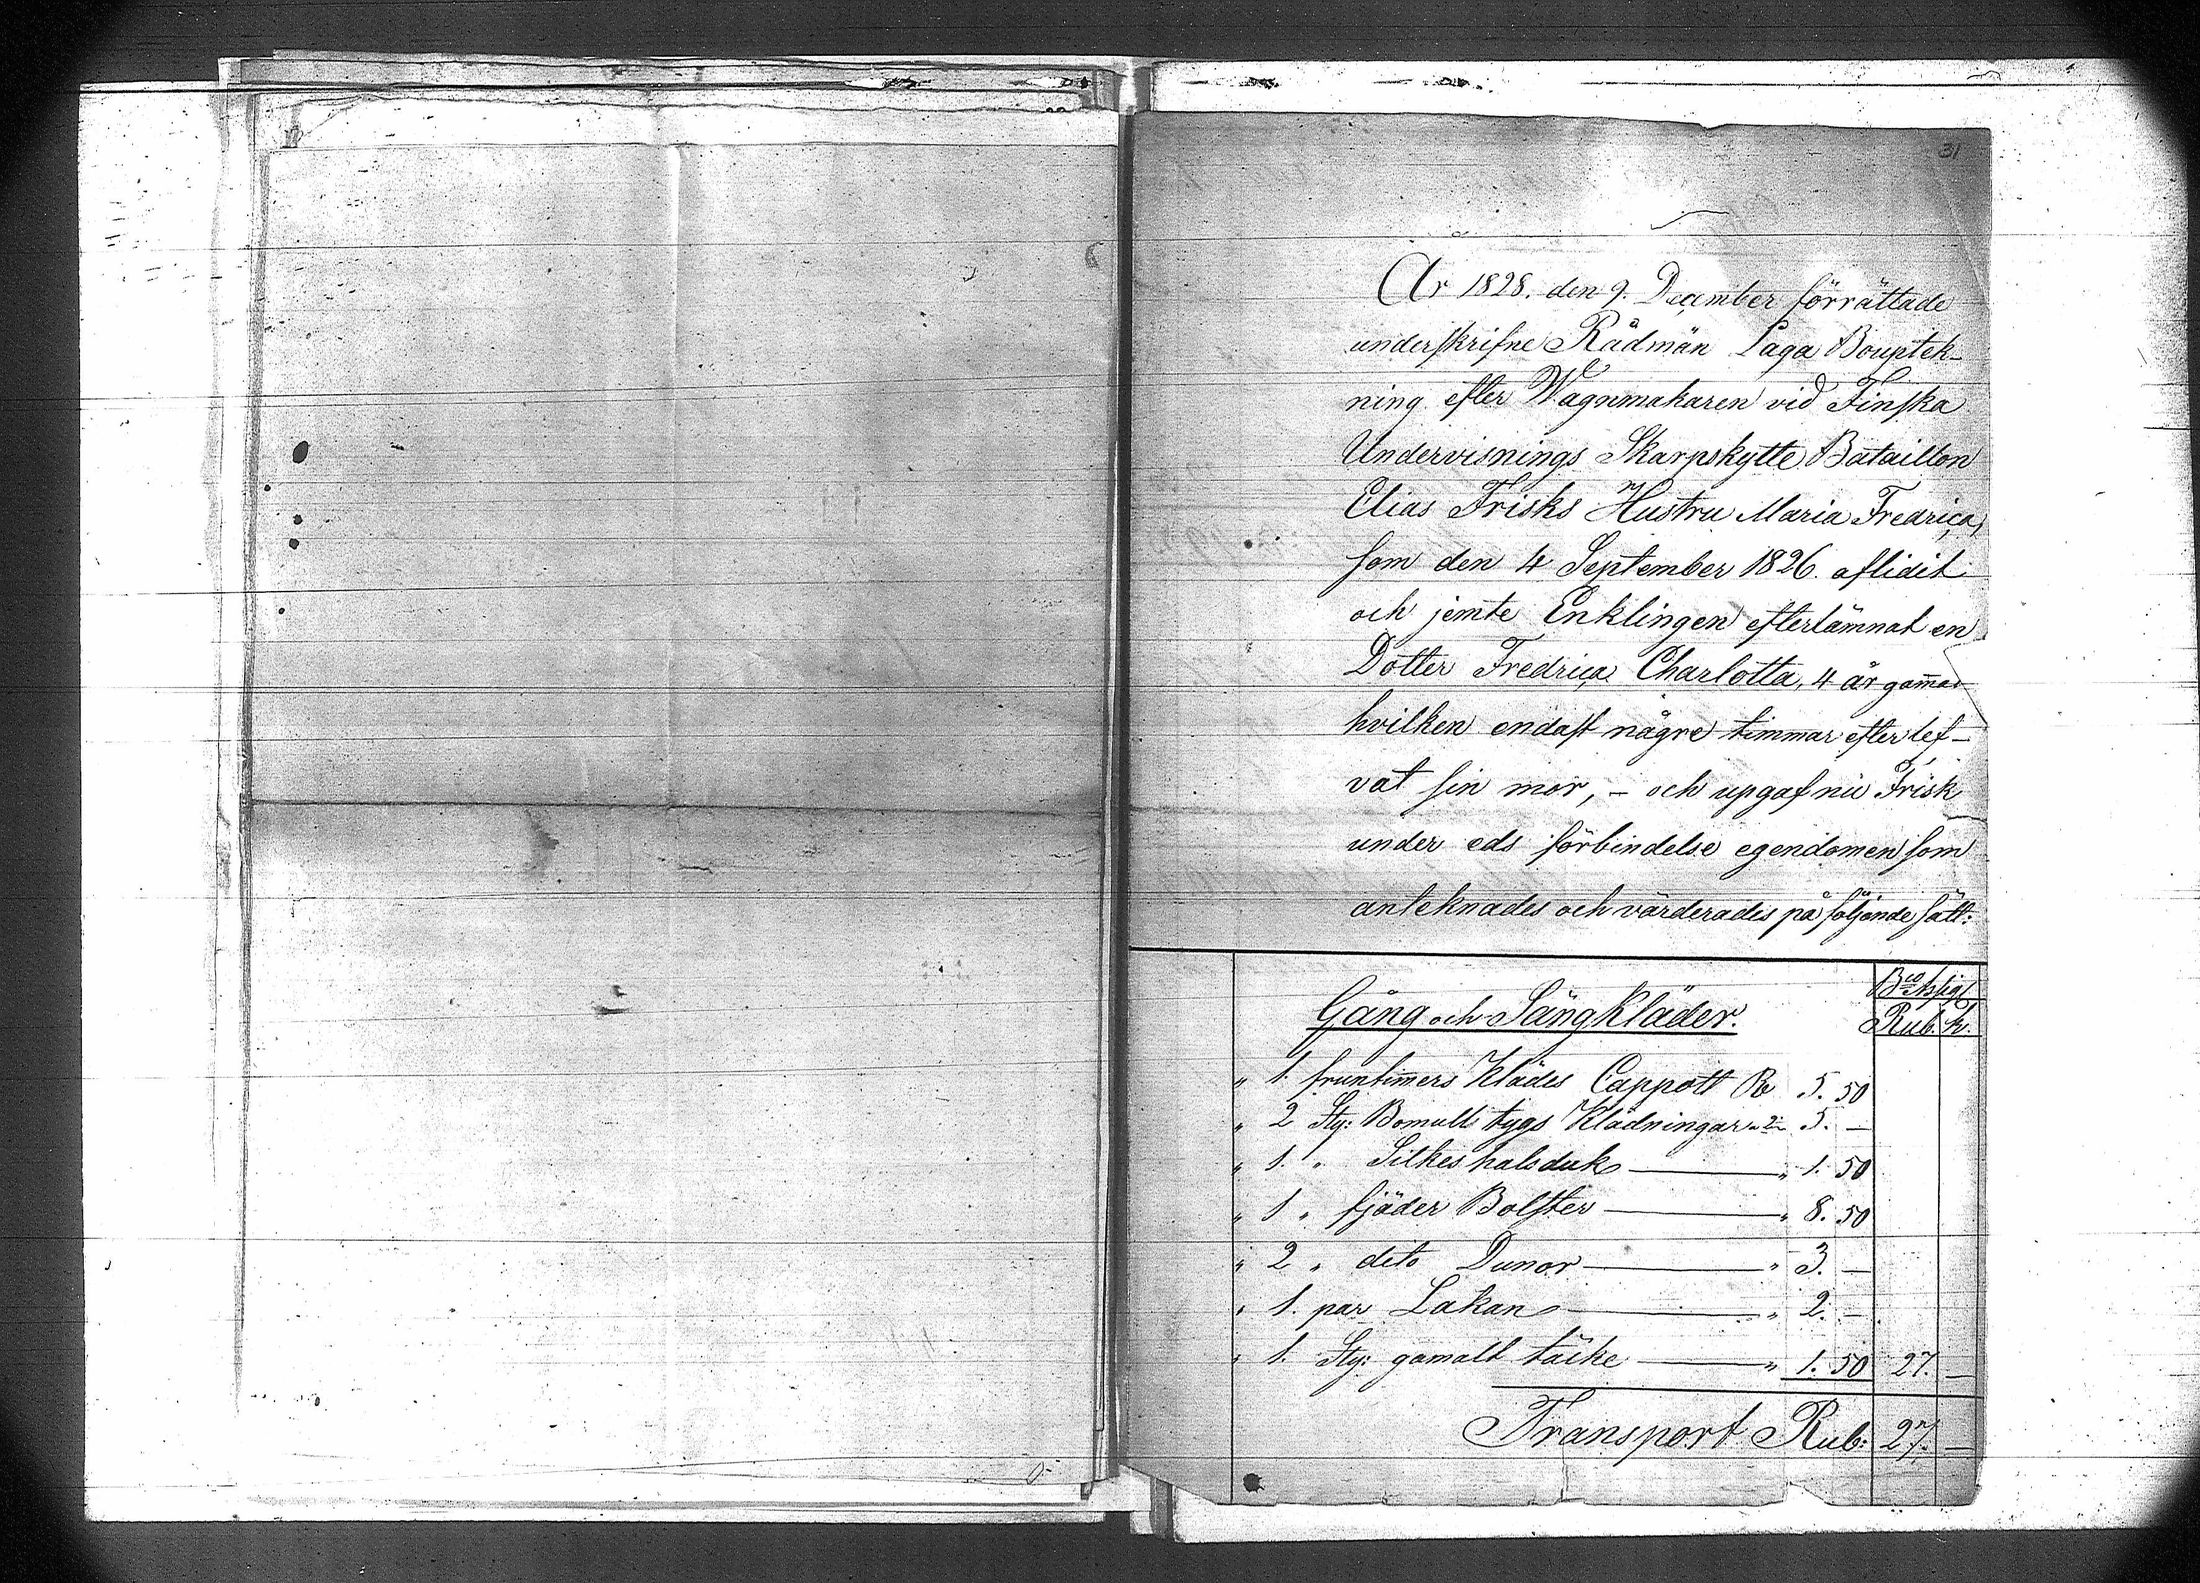 31
År 1828. den 9. December förrättade
underskrifne Rådmän Laga Bouptek-
ning efter Wagnmakaren vid Finska
Undervisnings Skarpskytte Bataillon
Elias Frisks Hustru Maria Fredrica,
som den 4 September 1826. aflidit
och jemte Enklingen efterlämnat en
Dotter Fredrica Charlotta, 4 år gamal
hvilken endast några timmar efterlef-
vat sin mor, - och upgaf nu Frisk
under eds förbindelse egendomen som
anteknades och värderades på följande sätt:
Bco Assign
Gång och Sängkläder. Rub. k.
" 1. fruntimers Klädes Cappott Ro 5. 50
" 2 Sty: Bomulls tygs Klädningar " 2: " 5. —
" 1. " Silkes halsduk " 1. 50
" 1 " fjäder Bolster " 8. 50
" 2 " dito Dunor " 3. —
" 1. par Lakan " 2. —
" 1. Sty: gamalt täcke " 1. 50 27. —
Transport Rub: 27. —